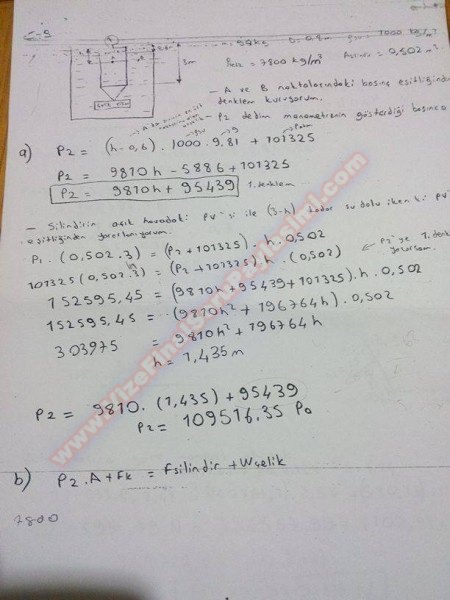 C-5
D=0.8m ρsu = 1000 kg/m³
ρçelik = 7800 kg/m³ Asilindir = 0,502 m².
3m
- A ve B noktalarındaki basınç eşitliğinden
denklem kuruyorum.
- P2 dedim manometrenin gösterdiği basınca
a) P2 = (h-0,6).1000.9,81 + 101325
P2 = 9810h - 5886 + 101325
P2 = 9810h + 95439 1. denklem
- Silindirin açık havadaki PV si ile (3-h) kadar su dolu iken ki PV
eşitliğinden yararlanıyorum.
P1.(0,502.3) = (P2+101325).h.0,502
101325(0,502.3) = (P2+101325).h.(0,502) P2'ye 1. denk
152595,45 = (9810h+95439+101325).h.0,502
152595,45 = (9810h²+196764h).0,502
303975 = 9810h²+196764h
h = 1,435 m
P2 = 9810.(1,435)+95439
P2 = 109516.35 Pa
b) P2.A + Fk = Fsilindir + Wçelik
7800
www.VizeFinalSoruPaylasimi.com